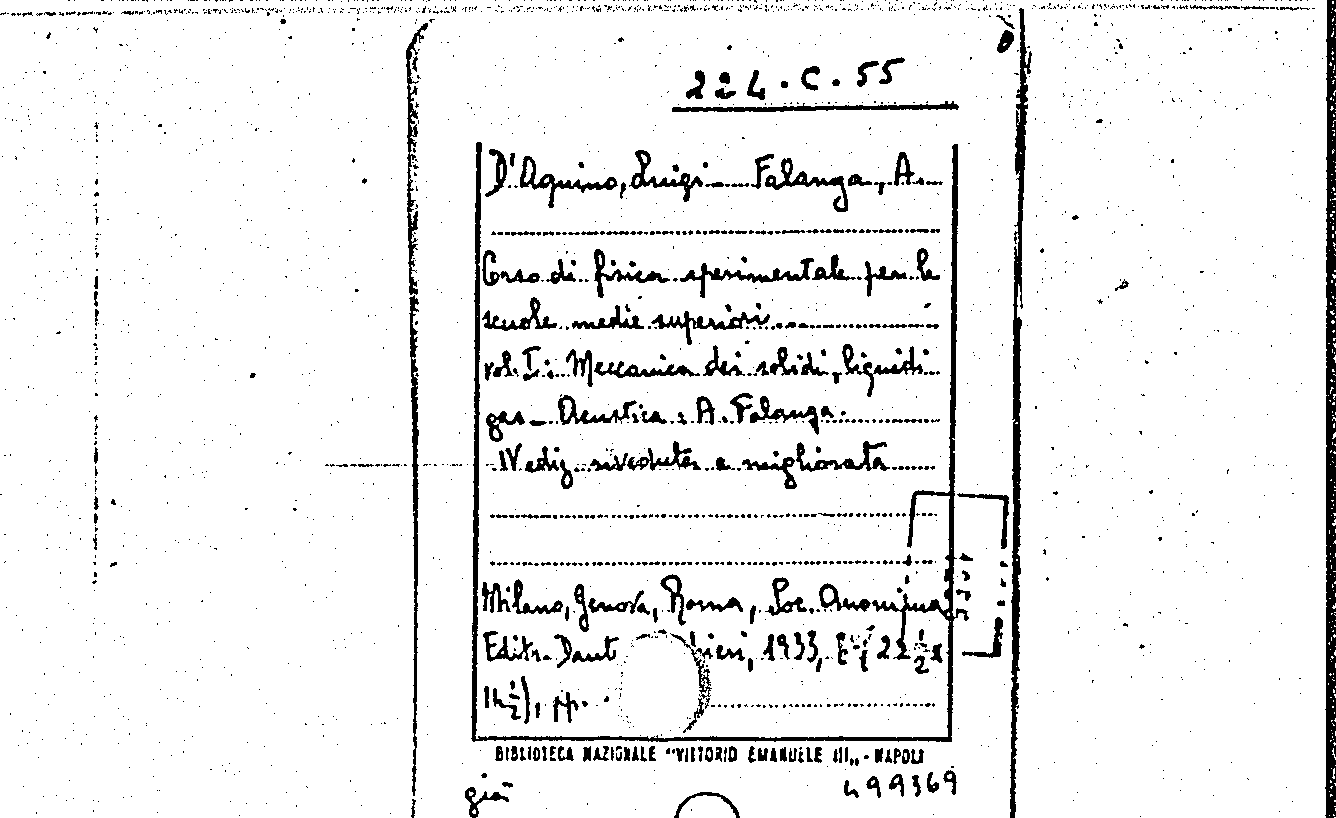 224.C.55
D'Aquino, Luigi - Falanga, A.
Corso di fisica sperimentale per le
scuole medie superiori
vol. I: Meccanica dei solidi, liquidi
gas - Acustica: A. Falanga.
IV ediz. riveduta e migliorata
Milano, Genova, Roma, Soc. Anonima
Editr. Dant hieri, 1933, 22 1/2 x
14 1/2), pp.
BIBLIOTECA NAZIONALE "VITTORIO EMANUELE III„ - NAPOLI
già
499369